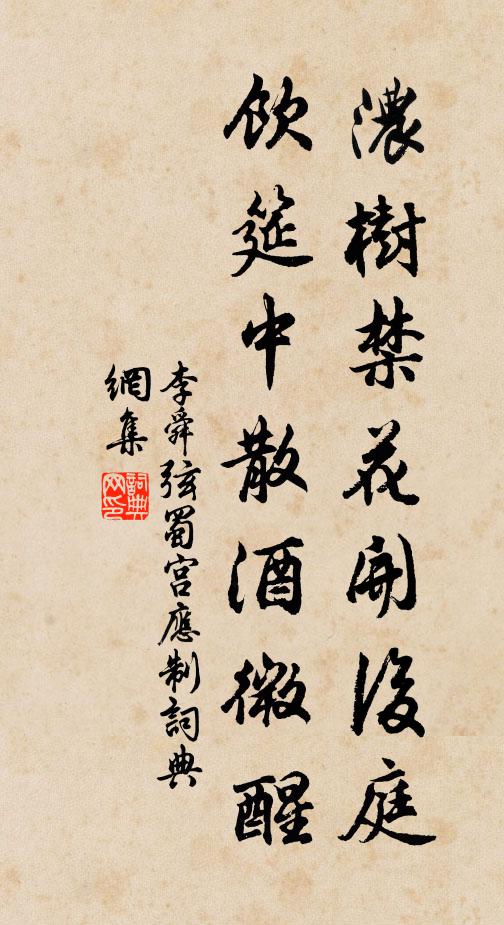 濃樹禁花開後庭
飲筵中散酒微醒
李舜弦蜀宮應制詞典
網集
詞典
网印